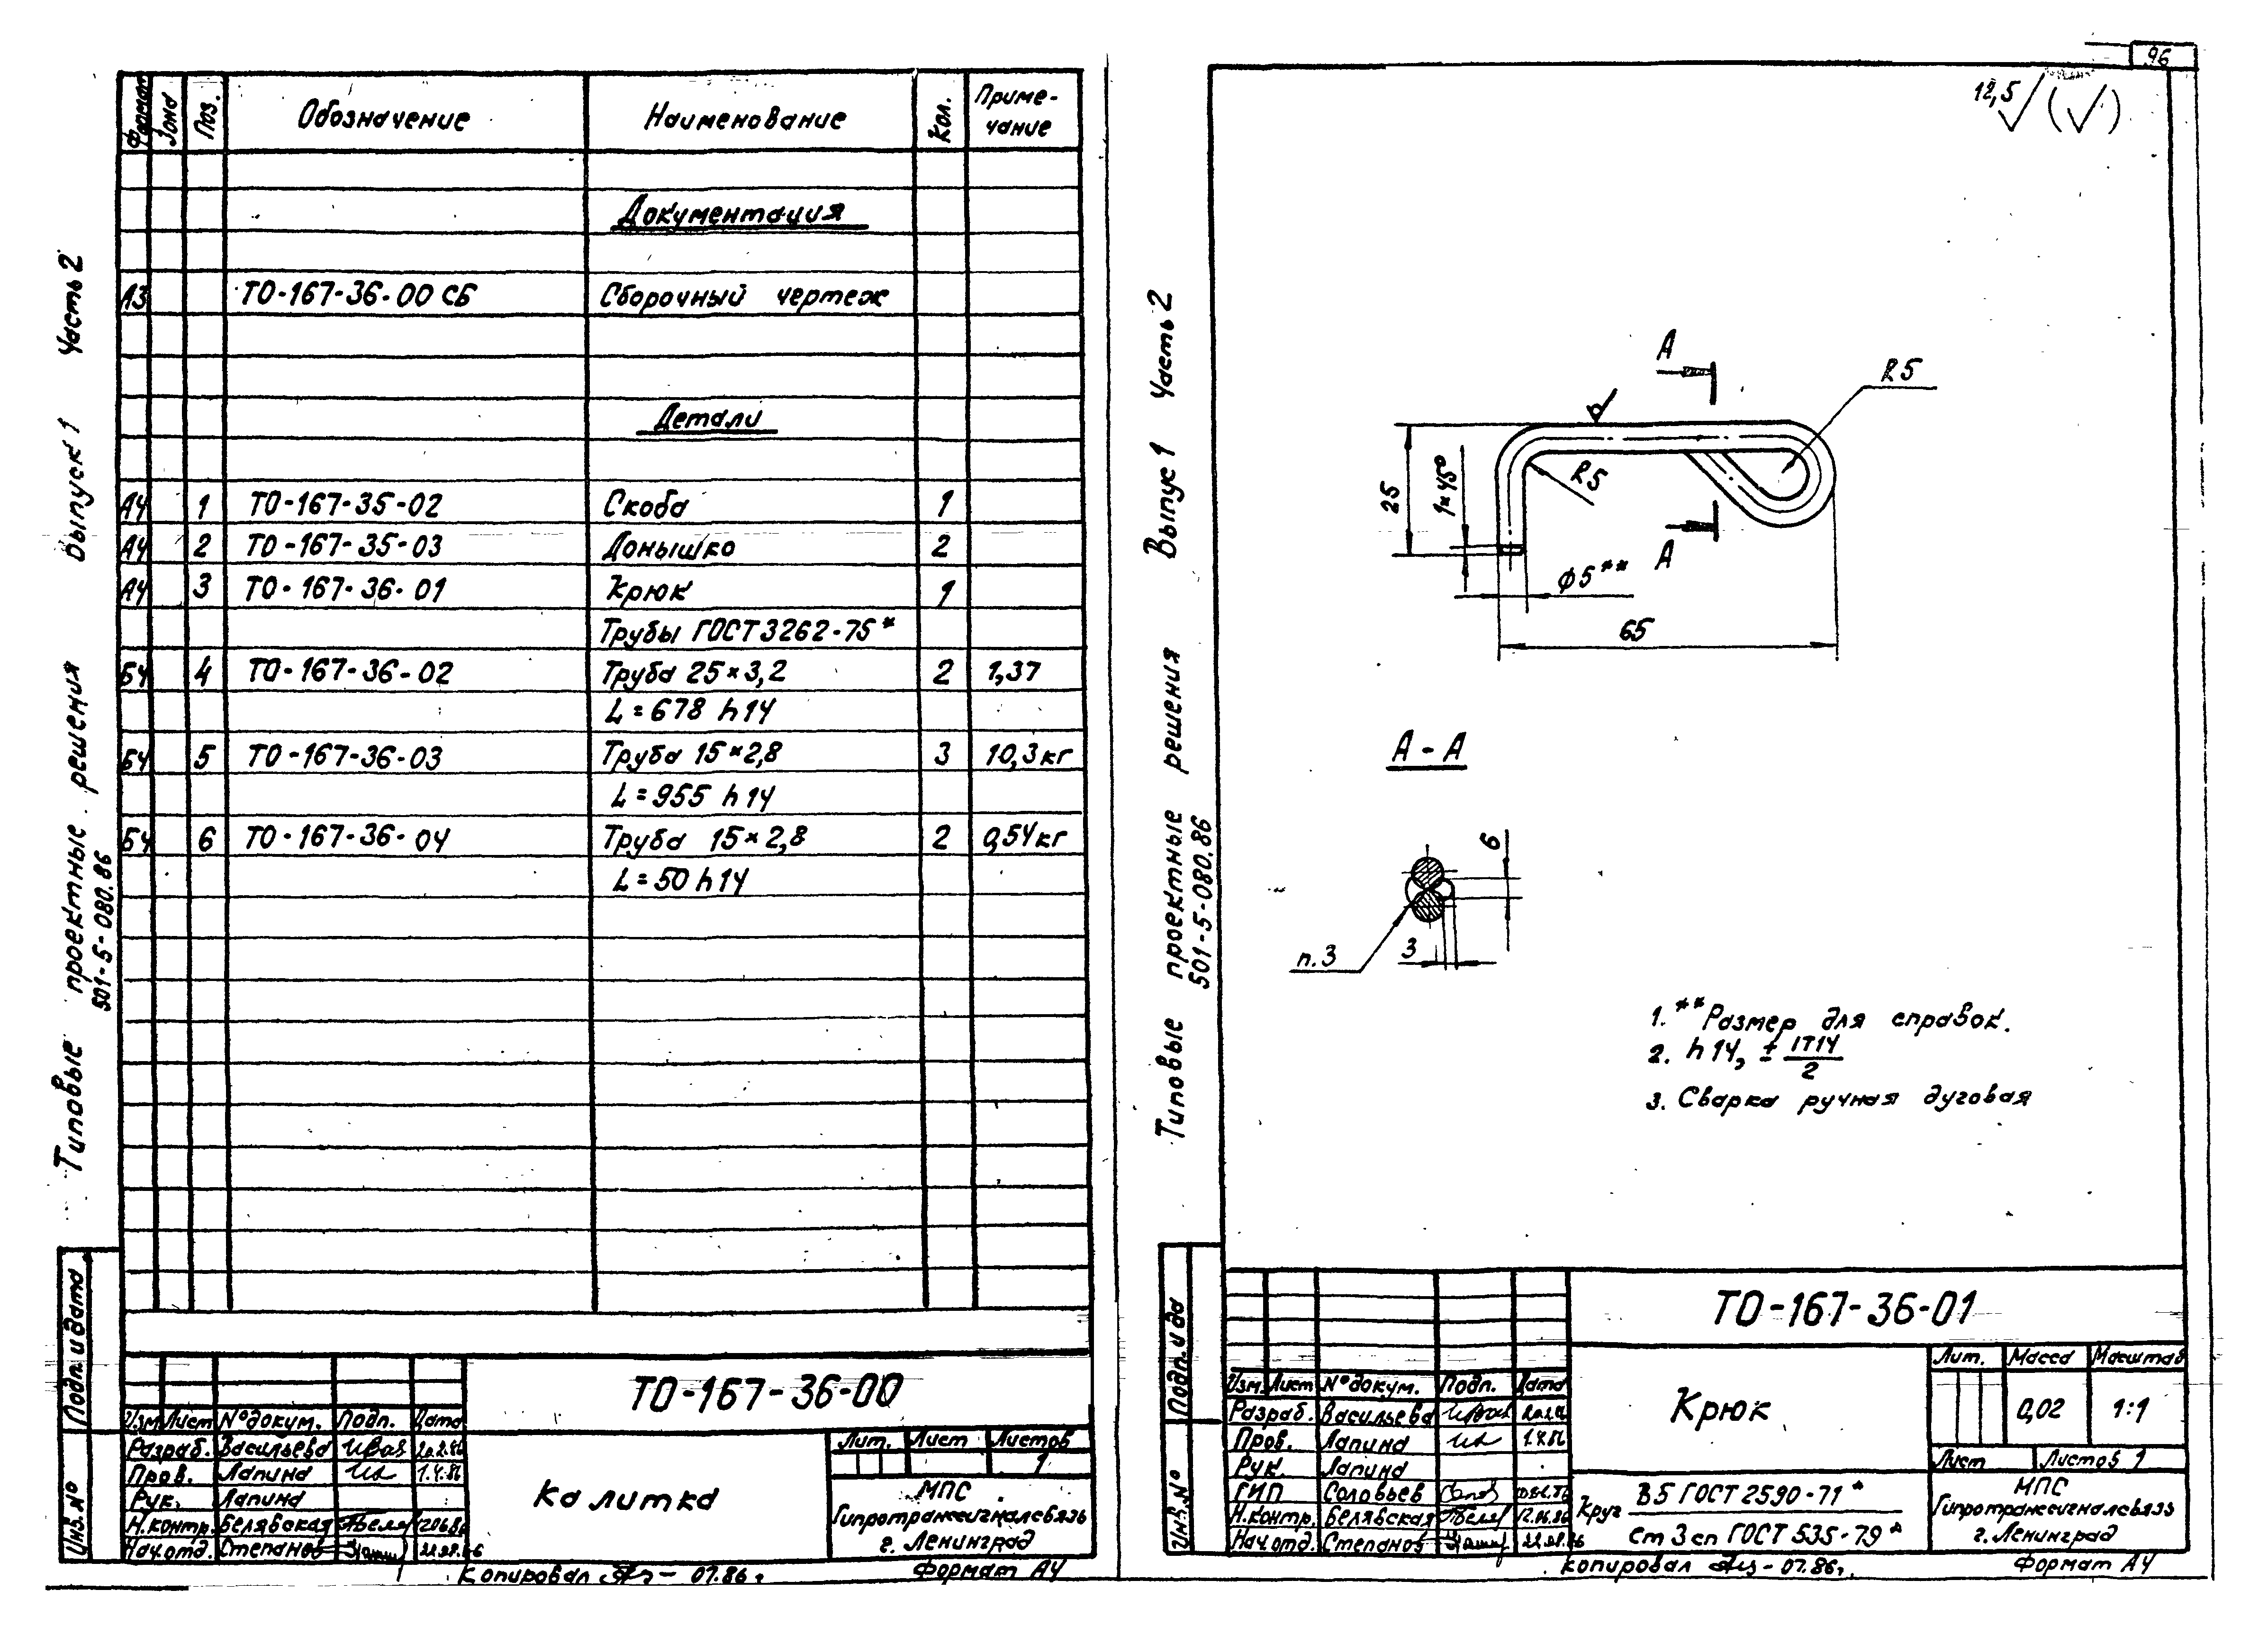 Формат Зона Поз. Обозначение Наименование Кол. Приме-
чание
Документация
А3 ТО-167-36-00 СБ Сборочный чертеж
Детали
А4 1 ТО-167-35-02 Скоба 1
А4 2 ТО-167-35-03 Донышко 2
А4 3 ТО-167-36-01 Крюк 1
Трубы ГОСТ 3262-75*
БЧ 4 ТО-167-36-02 Труба 25×3,2 2 1,37
L=678 h14
БЧ 5 ТО-167-36-03 Труба 15×2,8 3 10,3кг
L=955 h14
БЧ 6 ТО-167-36-04 Труба 15×2,8 2 0,54кг
L=50 h14
Типовые проектные решения Выпуск 1 Часть 2
501-5-080.86
Подп. и дата
Инв.№
ТО-167-36-00
Изм. Лист №докум. Подп. Дата
Разраб. Васильева
Пров. Лапина 1.4.86
Рук. Лапина
Н.контр. Белявская
Нач.отд. Степанов
Калитка
Лит. Лист Листов
1
МПС
Гипротранссигналсвязь
г. Ленинград
Копировал 07.86г.
Формат А4
96
12,5 (√)
Типовые проектные решения Выпуск 1 Часть 2
501-5-080.86
А
R5
25
1×45°
R5
А
φ5**
65
А-А
6
п.3
3
1. **Размер для справок.
2. h14, ± IT14
2
3. Сварка ручная дуговая
Подп. и да
Инв.№
ТО-167-36-01
Изм. Лист №докум. Подп. Дата
Разраб. Васильева
Пров. Лапина 1.4.86
Рук. Лапина
ГИП Соловьев
Н.контр. Белявская
Нач.отд. Степанов
Крюк
Лит. Масса Масштаб
0,02 1:1
Лист Листов 1
Круг В5 ГОСТ 2590-71*
Ст 3 сп ГОСТ 535-79*
МПС
Гипротранссигналсвязь
г. Ленинград
Копировал 07.86г.
Формат А4